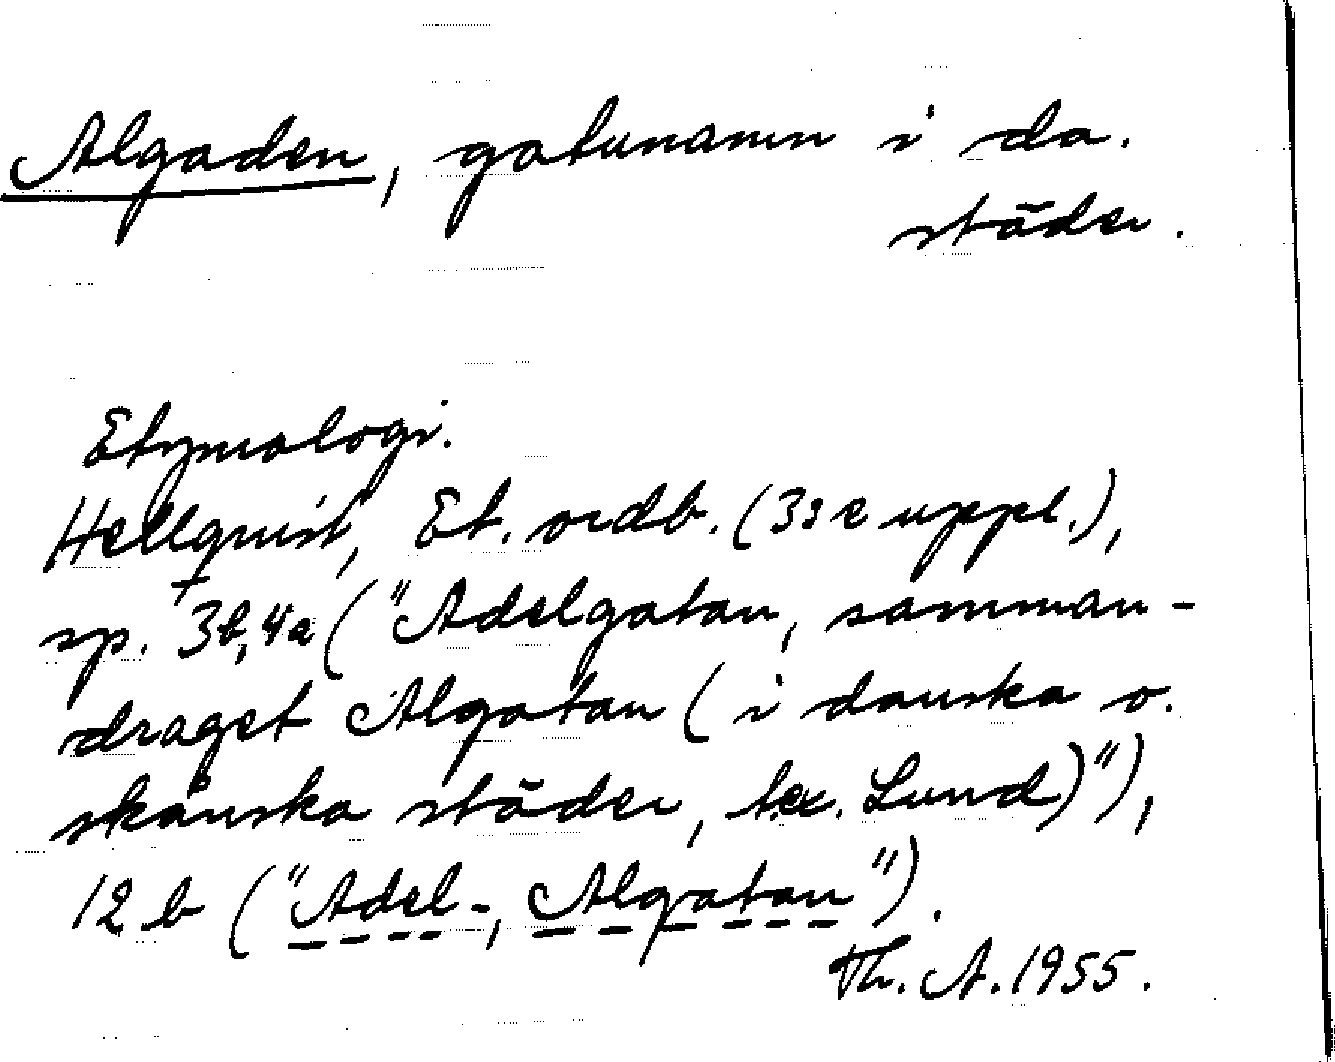 Algaden, gatunamn i da.
städer.
Etymologi.
Hellquist, Et. ordb. (3:e uppl.),
sp. †3b, 4a ("Adelgatan, samman-
draget Algatan (i danska o.
skånska städer, t.ex. Lund)"),
12 b ("Adel-, Algatan").
Th. A. 1955.